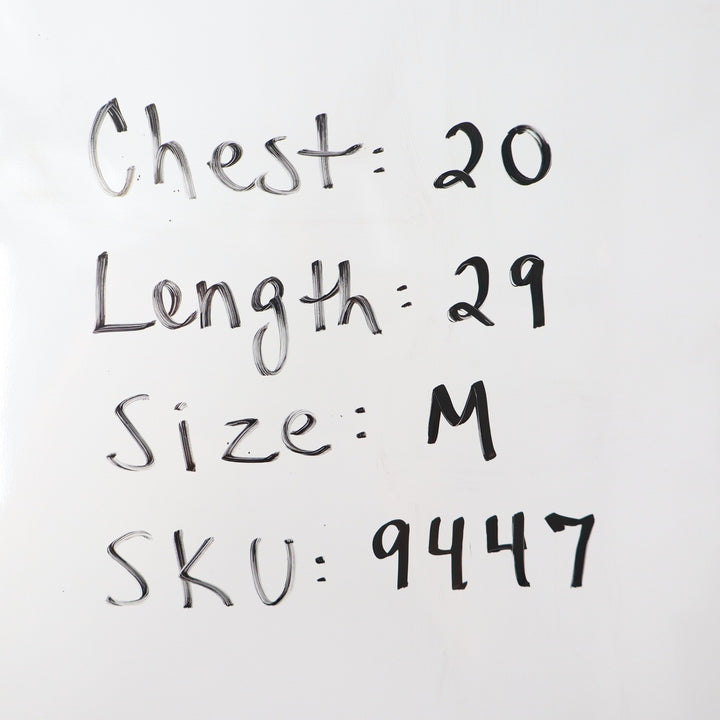 Chest: 20
Length: 29
Size: M
SKU: 9447